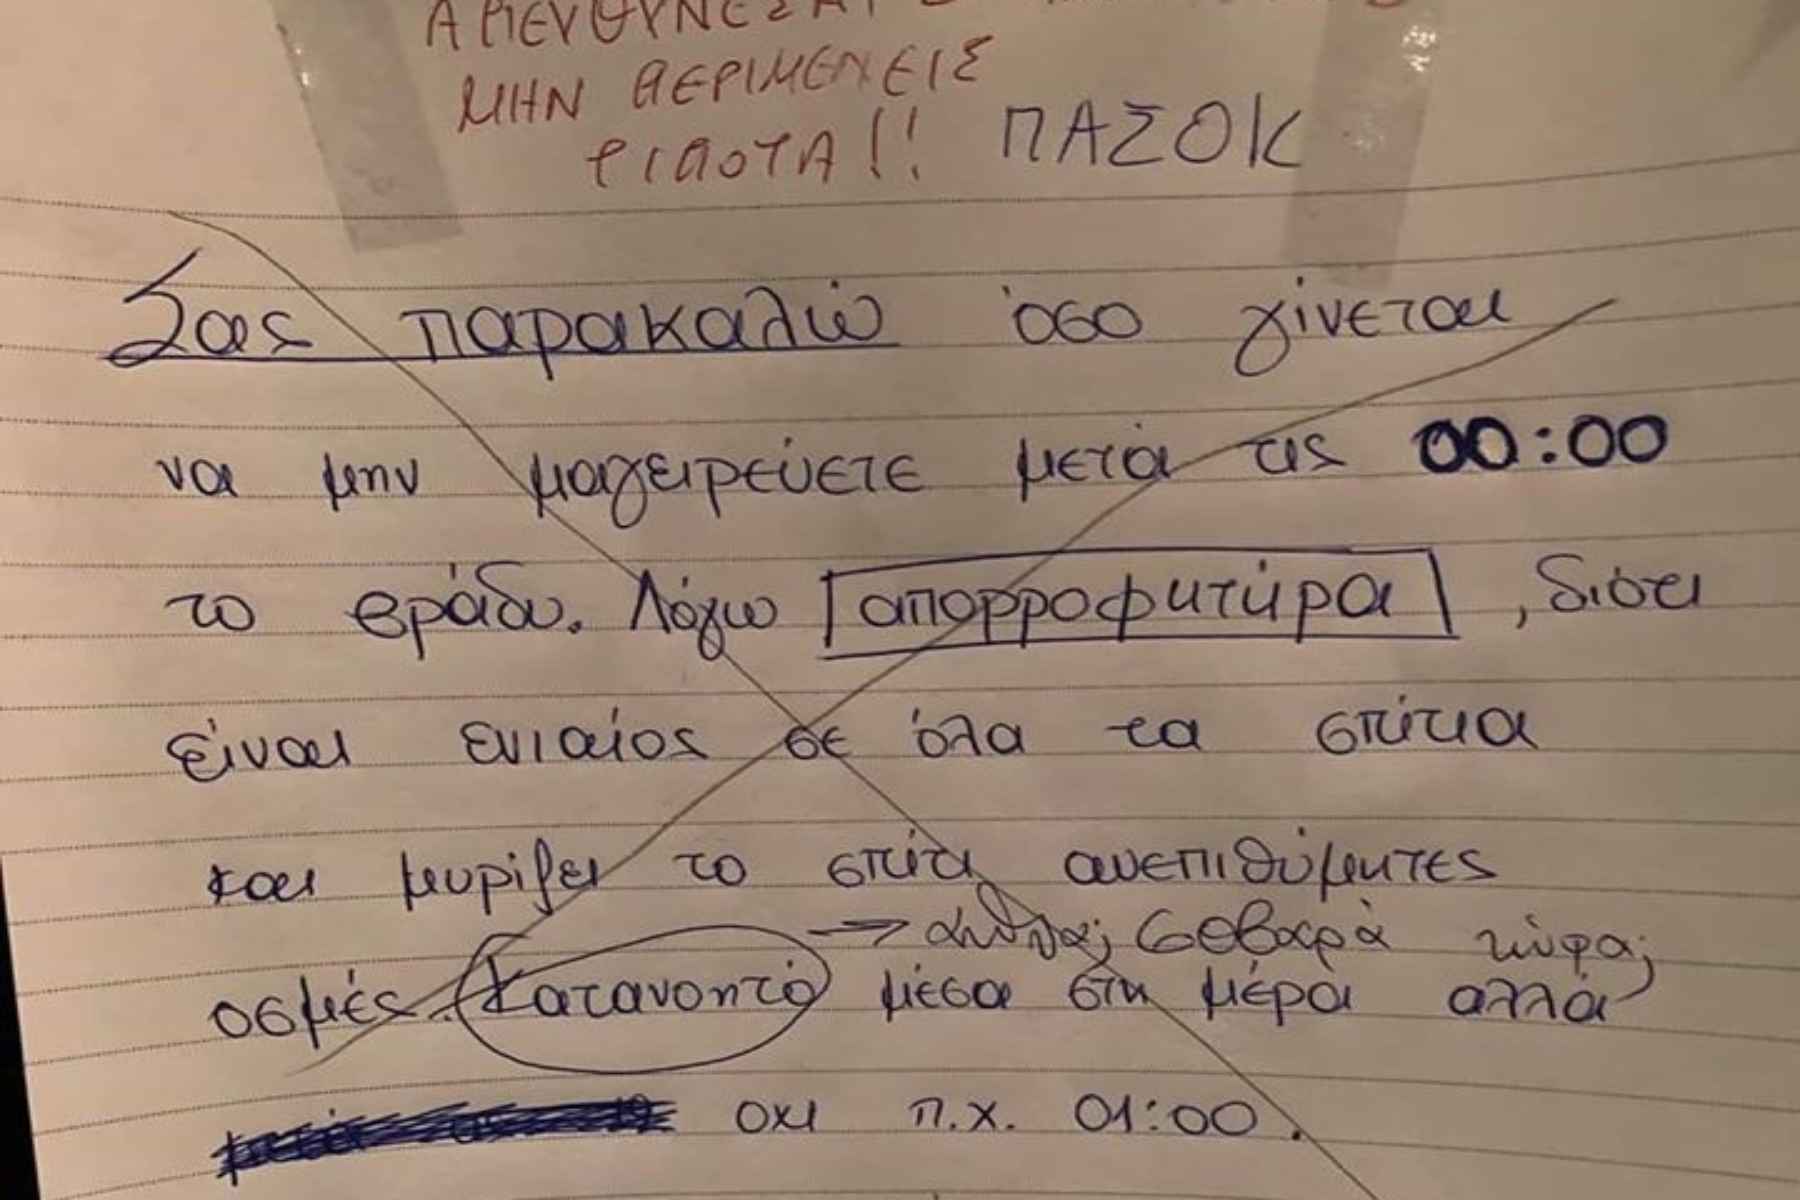 ΑΠΕΥΘΥΝΕΣΑΙ
ΜΗΝ ΠΕΡΙΜΕΝΕΙΣ
ΤΙΠΟΤΑ!! ΠΑΣΟΚ
Σας παρακαλώ όσο γίνεται
να μην μαγειρεύετε μετά τις 00:00
το βράδυ. Λόγω απορροφητήρα, διότι
είναι ενιαίος σε όλα τα σπίτια
και μυρίζει το σπίτι ανεπιθύμητες
→ αλήθεια; Σοβαρά τώρα;
οσμές. Κατανοητό μέσα στη μέρα αλλά
οχι π.χ. 01:00.